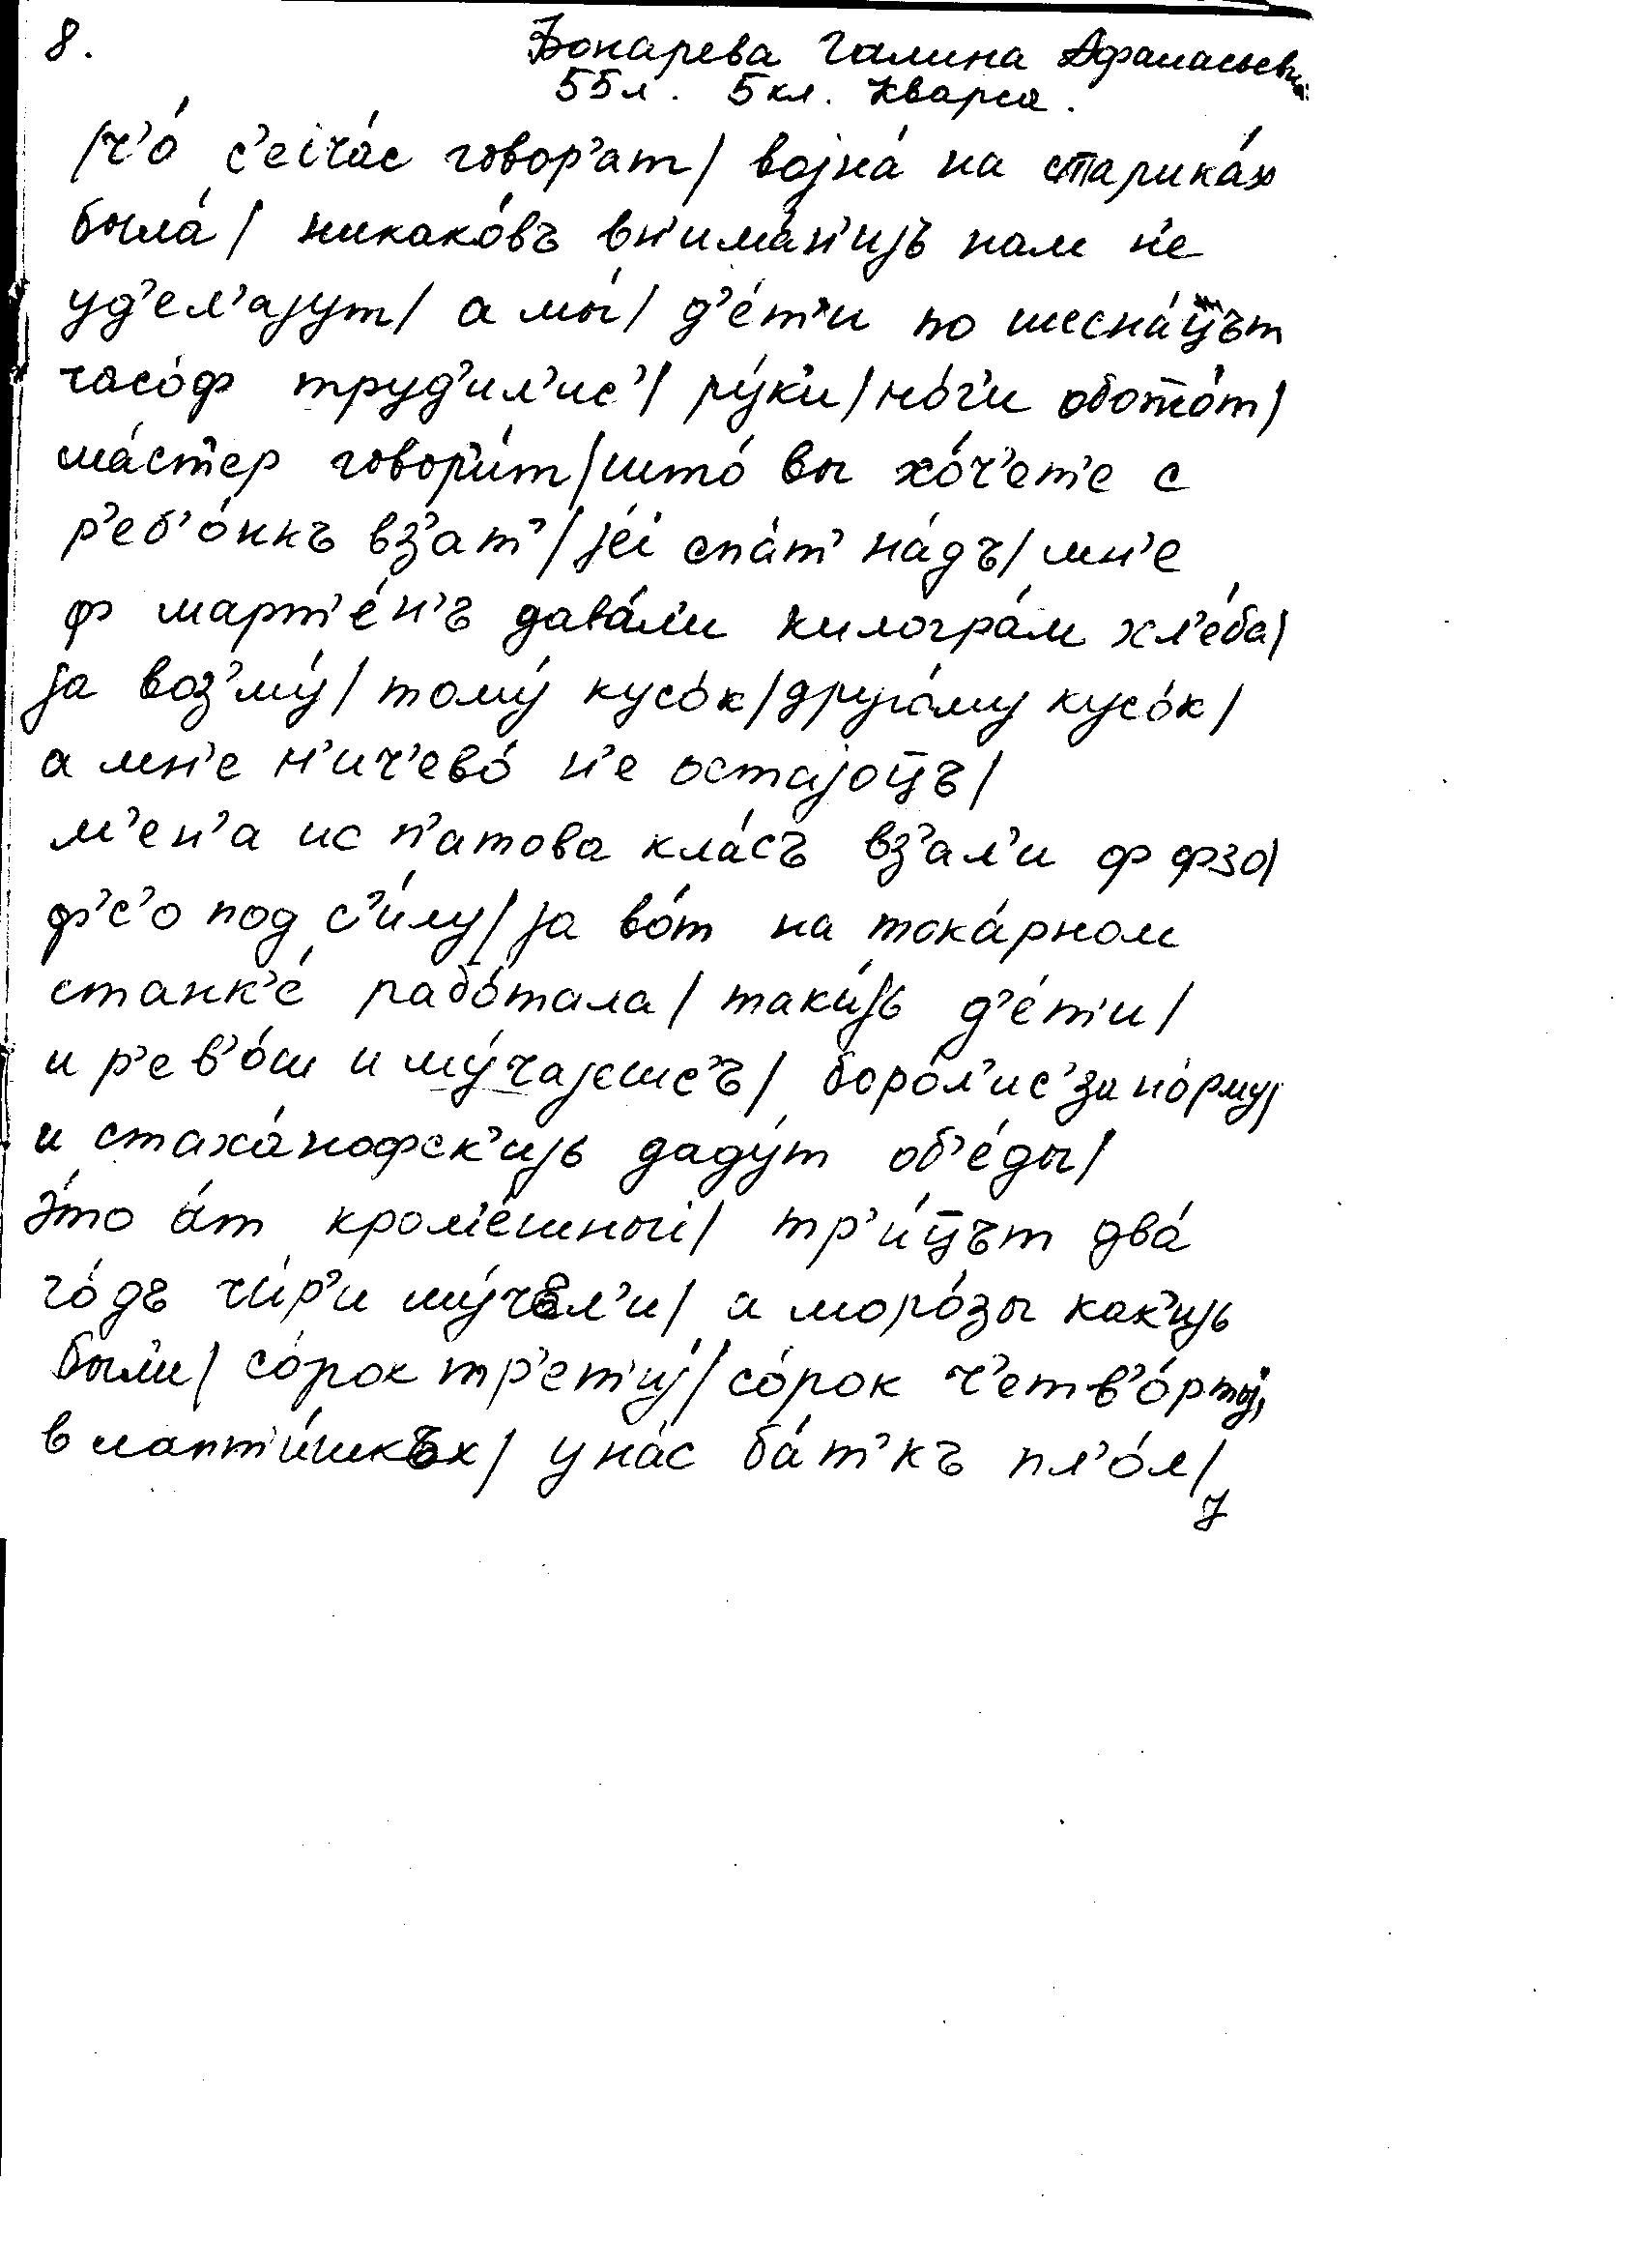 8.
Бокарева Галина Афанасьевна
55л. 5 кл. Кварса.
/ч’о́ с’еiча́с говор’ат/ воjна́ на старика́х
была́/ никако́въ вн’има́н’иjъ нам н’е
уд’ел’аjут/ а мы́/ д’е́т’и по шесна́ц̅ът
часо́ф труд’ил’ис’/ ру́к’и/ но́г’и
ма́стер говори́т/ што́ вы хо́ч’ет’е с
р’еб’о́нкъ вз’ат’/ jеi спа́т’ на́дъ/ мн’е
ф март’е́н’ъ дава́л’и килогра́м хл’е́ба/
jа воз’му́/ тому́ кусо́к/ друго́му кусо́к/
а мн’е н’ич’ево́ н’е остаjоц̅ъ/
м’ен’а ис п’атова кла́съ вз’ал’и ф фзо/
ф’с’о под с’и́лу/ jа во́т на тока́рном
станк’е́ рабо́тала/ таки́jь д’е́т’и/
и р’ев’о́ш и му́чаjешс’ъ/ боро́л’ис’ за но́рму/
и стаха́нофск’иjь даду́т об’е́ды/
э́то а́т кром’е́шныi/ тр’и́ц̅ът два́
го́дъ чи́р’и му́чел’и/ а моро́зы как’иjь
был’и/ со́рок тр’ет’иj/ со́рок ч’етв’о́ртыj/
в лапт’и́шкъх/ у на́с ба́т’къ пл’о́л/
7